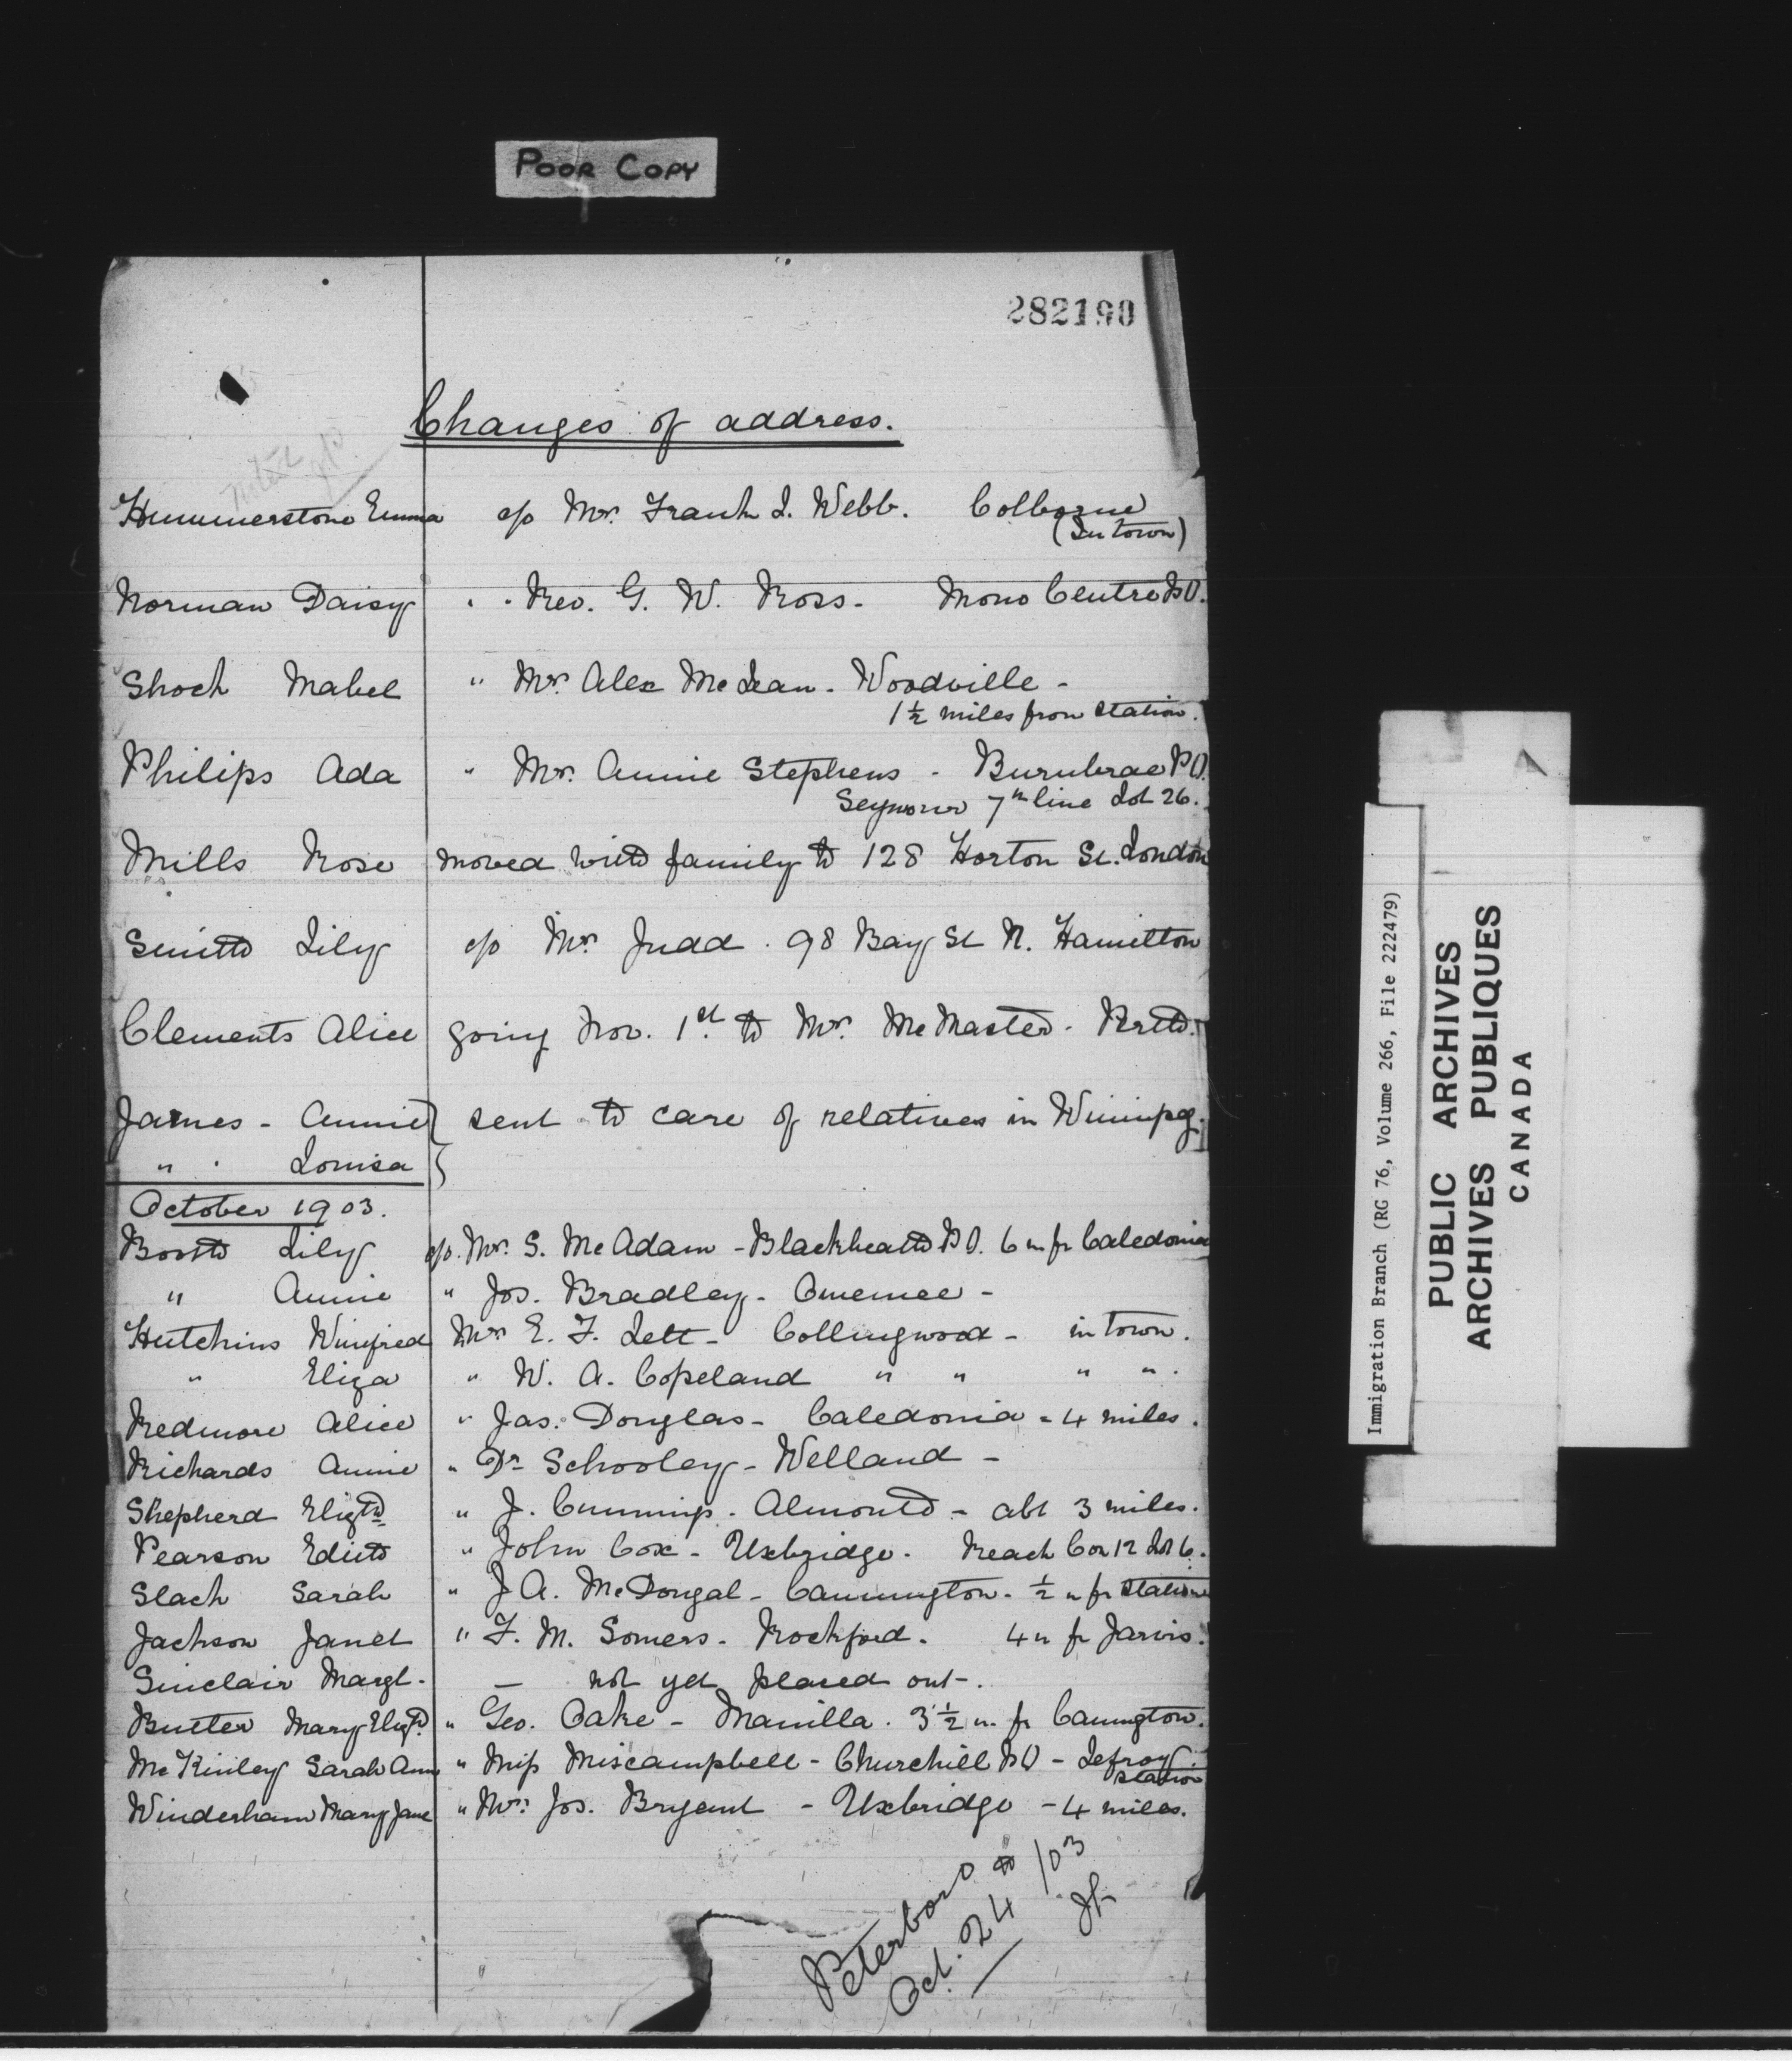 POOR COPY
282190
Changes of address.
Hummerstone Emma c/o Mr. Frank I. Webb. Colborne
(In town)
Norman Daisy " Rev. G. W. Ross - Mono Centre P.O.
Shock Mabel " Mr. Alex McLean - Woodville -
1½ miles from station.
Philips Ada " Mrs. Annie Stephens - Burnbrae P.O.
Seymour 7th line Lot 26.
Mills Rose moved with family to 128 Horton St. London
Smith Lily c/o Mrs Judd. 98 Bay St N. Hamilton
Clements Alice going Nov. 1st to Mrs. McMaster - Perth.
James - Annie } sent to care of relatives in Winnipeg.
" Louisa }
October 1903.
Booth Lily c/o. Mr. S. McAdam - Blackheath P.O. 6 m fr Caledonia
" Annie " Jos. Bradley - Omemee -
Hutchins Winifred Mrs E. F. Lett - Collingwood - in town.
" Eliza " W. A. Copeland " " " ".
Redmore Alice " Jas. Douglas - Caledonia - 4 miles.
Richards Annie " Dr Schooley - Welland -
Shepherd Elizth " J. Cummings - Almonte - abt 3 miles.
Pearson Edith " John Cox - Uxbridge. Reach Con 12 Lot 6.
Slack Sarah " J A. McDougal - Cannington - ½ m fr station
Jackson Janet " F. M. Somers - Rockford. 4 m fr Jarvis.
Sinclair Margt. — not yet placed out -.
Butler Mary Elizth " Geo. Oake - Manilla. 3½ m. fr Cannington.
McKinley Sarah Ann " Miss Miscampbell - Churchill P.O - Lefroy
station
Winderham Mary Jane " Mrs. Jos. Bryant - Uxbridge - 4 miles.
Peterboro
Oct. 24/03
Immigration Branch (RG 76, Volume 266, File 222479)
PUBLIC ARCHIVES
ARCHIVES PUBLIQUES
CANADA